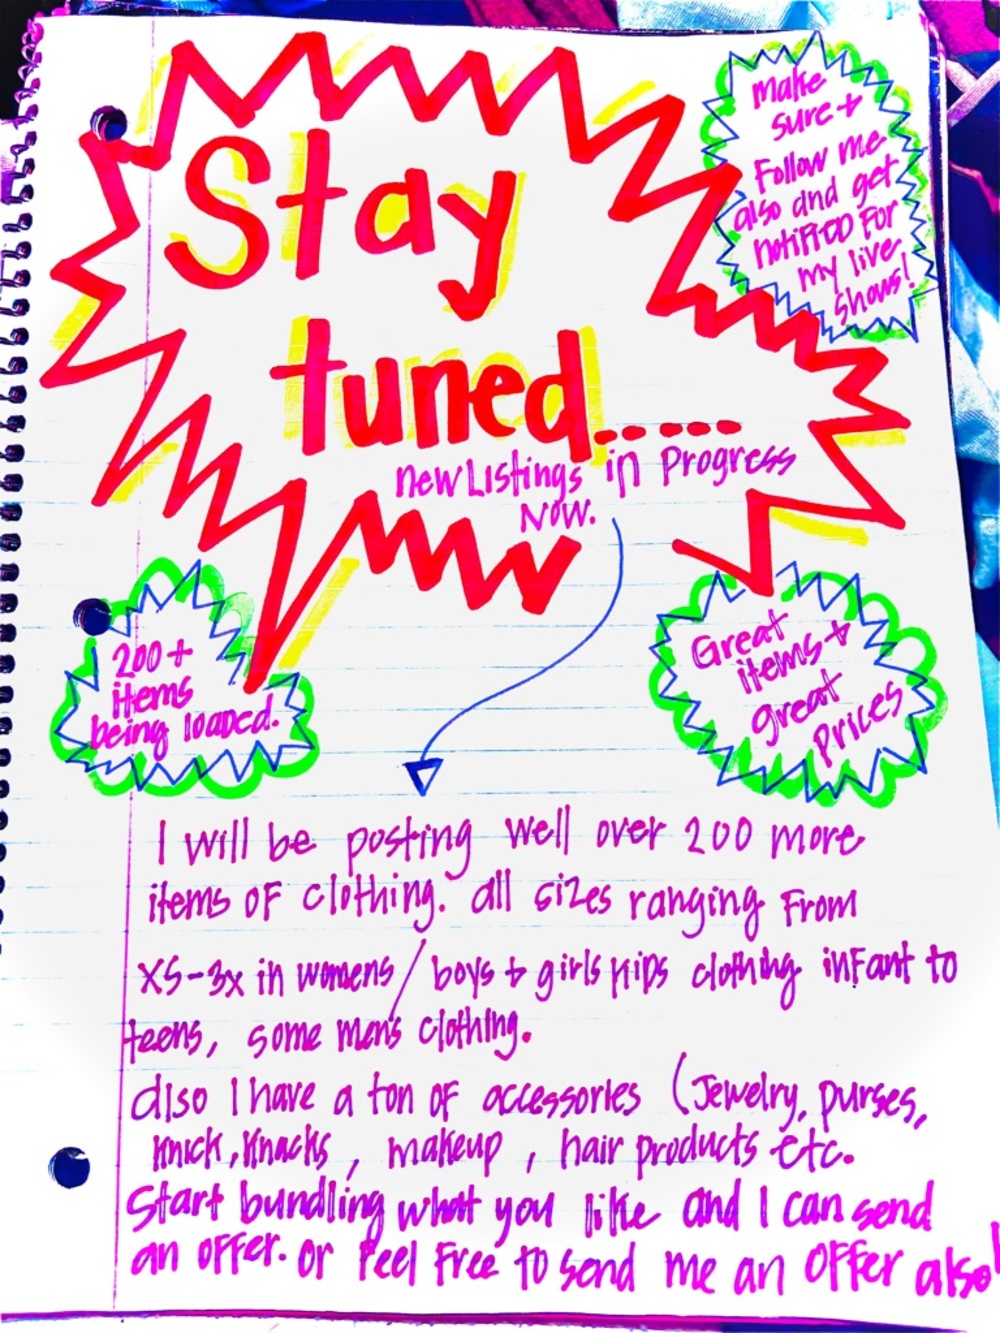 Stay
tuned......
new Listings in Progress
Now.
make
sure +
Follow me
also and get
notified For
my live
shows!
200+
items
being loaded.
Great
items +
great
prices
I will be posting well over 200 more
items of clothing. all sizes ranging from
XS-3x in womens/boys + girls kids clothing infant to
teens, some mens clothing.
also I have a ton of accessories (Jewelry, purses,
Knick, Knacks, makeup, hair products etc.
Start bundling what you like and I can send
an offer. or Feel Free to send me an offer also!